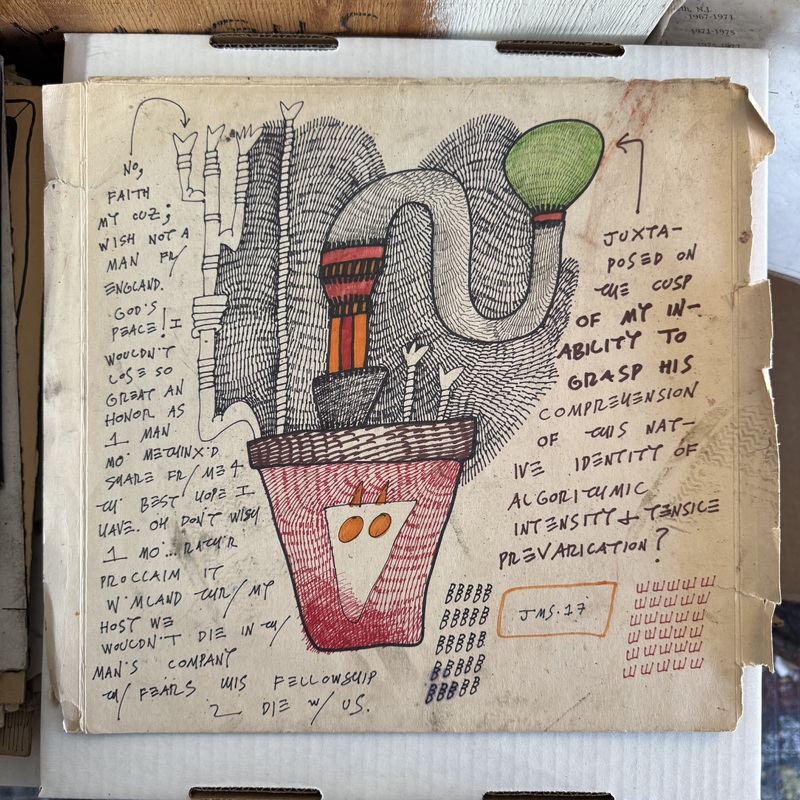 No,
FAITH
MY CUZ;
WISH NOT A
MAN FR/
ENGLAND.
GOD'S
PEACE! I
WOULDN'T
LOSE SO
GREAT AN
HONOR AS
1 MAN
MO' METHINX'D
SHARE FR/ ME 4
TH' BEST HOPE I
HAVE. OH DON'T WISH
1 MO'... RATH'R
PROCCLAIM IT
W'MLAND THR/ MY
HOST WE
WOULDN'T DIE IN TH/
MAN'S COMPANY
TH/ FEARS HIS FELLOWSHIP
2 DIE W/ US.
JUXTA-
POSED ON
THE CUSP
OF MY IN-
ABILITY TO
GRASP HIS
COMPREHENSION
OF THIS NAT-
IVE IDENTITY OF
ALGORITHMIC
INTENSITY & TENSICE
PREVARICATION?
BBBBB
BBBBB
BBBBB
BBBBB
BBBBB
JMS.17
th, N.J.
1967-1971
1971-1975